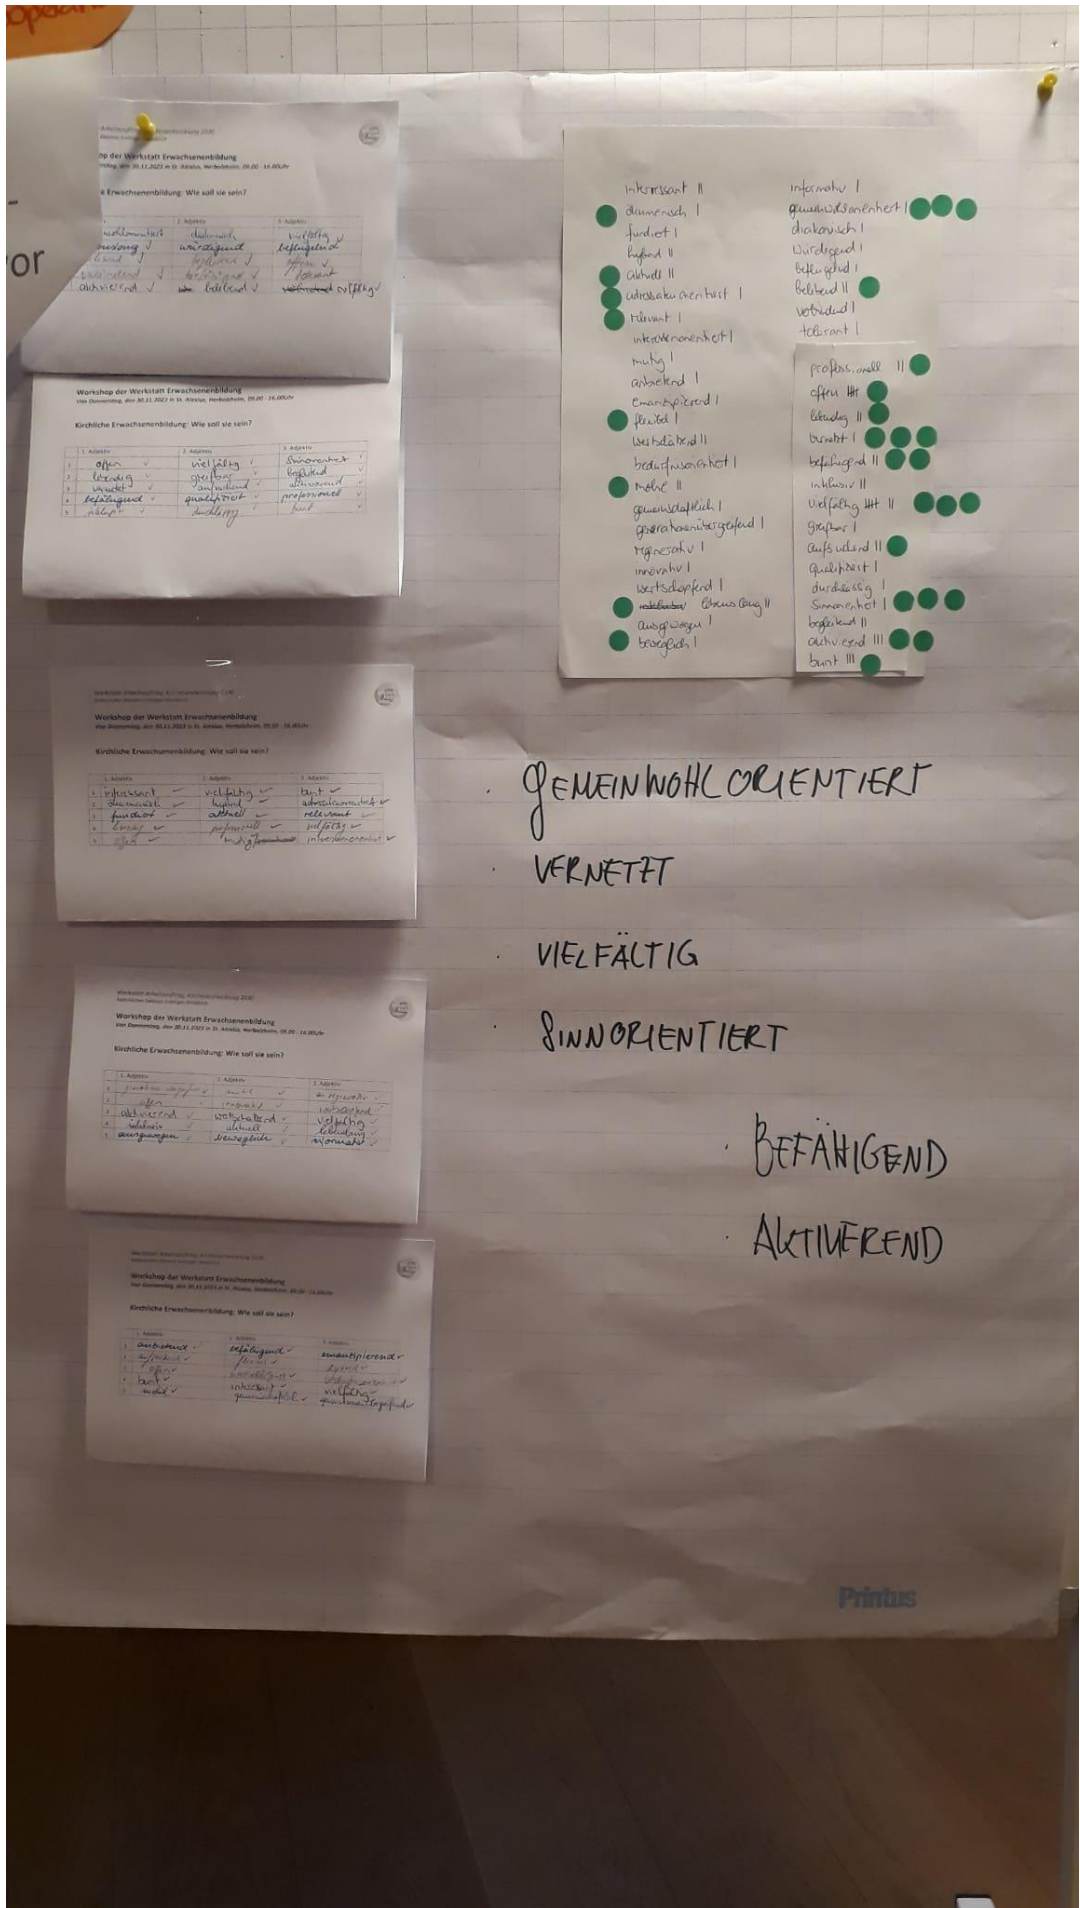 or
Workshop der Werkstatt Erwachsenenbildung
30.11.2023 in St. Alexius, Herbolzheim, 09.00 - 16.00Uhr
Erwachsenenbildung: Wie soll sie sein?
2. Adjektiv 3. Adjektiv
diakonisch vielfältig
würdigend beflügelnd
tolerant
aktivierend belebend vielfältig
Workshop der Werkstatt Erwachsenenbildung
Von Donnerstag, den 30.11.2023 in St. Alexius, Herbolzheim, 09.00 - 16.00Uhr
Kirchliche Erwachsenenbildung: Wie soll sie sein?
1. Adjektiv 2. Adjektiv 3. Adjektiv
1 offen vielfältig Sinnorientiert
2 lebendig greifbar begleitend
3 vernetzt aufsuchend aktivierend
4 befähigend qualifiziert professionell
5 inklusiv durchlässig bunt
Workshop der Werkstatt Erwachsenenbildung
Von Donnerstag, den 30.11.2023 in St. Alexius, Herbolzheim, 09.00 - 16.00Uhr
Kirchliche Erwachsenenbildung: Wie soll sie sein?
1. Adjektiv 2. Adjektiv 3. Adjektiv
1 interessant vielfältig bunt
2 ökumenisch hybrid adressatenorientiert
3 fundiert aktuell relevant
4 lebendig professionell vielfältig
5 offen mutig
Workshop der Werkstatt Erwachsenenbildung
Von Donnerstag, den 30.11.2023 in St. Alexius, Herbolzheim, 09.00 - 16.00Uhr
Kirchliche Erwachsenenbildung: Wie soll sie sein?
1. Adjektiv 2. Adjektiv 3. Adjektiv
1 mobil
2 offen innovativ
3 aktivierend wertschätzend vielfältig
4 inklusiv aktuell lebenslang
5 ausgewogen beweglich informativ
Workshop der Werkstatt Erwachsenenbildung
Von Donnerstag, den 30.11.2023 in St. Alexius, Herbolzheim, 09.00 - 16.00Uhr
Kirchliche Erwachsenenbildung: Wie soll sie sein?
1. Adjektiv 2. Adjektiv 3. Adjektiv
1 anbietend befähigend emanzipierend
2 aufsuchend flexibel hybrid
3 offen
4 bunt interessant vielfältig
5 mobil gemeinschaftlich
interessant II
ökumenisch I
fundiert I
hybrid II
aktuell II
adressatenorientiert I
relevant I
mutig I
anbietend I
emanzipierend I
flexibel I
wertschätzend II
bedürfnisorientiert I
mobil II
gemeinschaftlich I
generationenübergreifend I
regenerativ I
innovativ I
wertschöpfend I
lebenslang II
ausgewogen I
beweglich I
informativ I
gemeinwohlorientiert I
diakonisch I
würdigend I
beflügelnd I
belebend II
verbindend I
tolerant I
professionell II
offen IIII
lebendig II
vernetzt I
befähigend II
inklusiv II
vielfältig IIII II
greifbar I
aufsuchend II
qualifiziert I
durchlässig I
Sinnorientiert I
begleitend II
aktivierend III
bunt III
GEMEINWOHLORIENTIERT
VERNETZT
VIELFÄLTIG
SINNORIENTIERT
BEFÄHIGEND
AKTIVIEREND
Printus